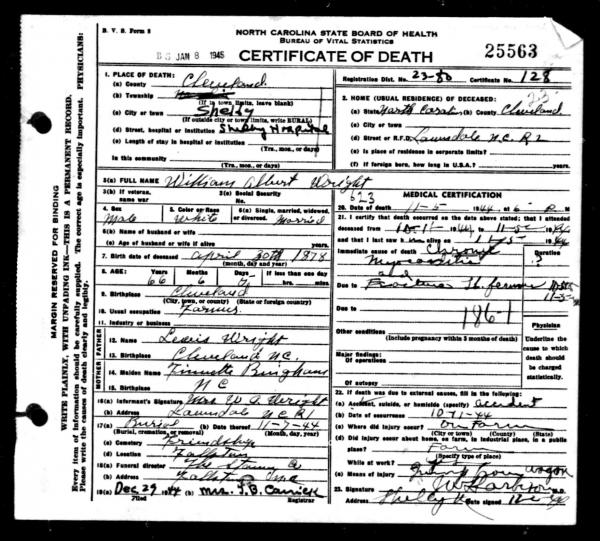 B. V. S. Form 8
NORTH CAROLINA STATE BOARD OF HEALTH
BUREAU OF VITAL STATISTICS
JAN 8 1945
CERTIFICATE OF DEATH
25563
Registration Dist. No. 23-80 Certificate No. 128
1. PLACE OF DEATH:
(a) County Cleveland
(b) Township
(If in town limits, leave blank)
(c) City or town Shelby
(If outside city or town limits, write RURAL)
(d) Street, hospital or institution Shelby Hospital
(e) Length of stay in hospital or institution
(Yrs., mos., or days)
In this community
(Yrs., mos., or days)
2. HOME (USUAL RESIDENCE) OF DECEASED:
(a) State North Carolina (b) County Cleveland
(c) City or town
(d) Street or R.F.D. Lawndale N.C. R1
(e) Is place of residence in corporate limits?
(f) If foreign born, how long in U.S.A.? years
3(a) FULL NAME William Albert Wright
3(b) If veteran, name war
3(c) Social Security No.
4. Sex Male
5. Color or Race White
6(a) Single, married, widowed, or divorced. Married
6(b) Name of husband or wife
6(c) Age of husband or wife if alive years
7. Birth date of deceased April 30th 1878
(month, day and year)
8. AGE: Years 66 Months 6 Days If less than one day hrs. min.
9. Birthplace Cleveland
(City, town, or county) (State or foreign country)
10. Usual occupation Farmer
11. Industry or business
FATHER
12. Name Lewis Wright
13. Birthplace Cleveland NC.
MOTHER
14. Maiden Name Bingham
15. Birthplace NC
16(a) Informant's Signature Mrs W A Wright
(b) Address Lawndale N.C R1
17(a) Burial (b) Date thereof 11-7-44
(Burial, cremation, or removal) (Month, day, year)
(c) Cemetery Friendship
(d) Location Fallston
18(a) Funeral director The Stamey Co
(b) Address Fallston
19(a) Dec 29 1944 (b) Mrs. J.B. Carrick
Filed Registrar
623
MEDICAL CERTIFICATION
20. Date of death 11-5 1944 at 6 P M
21. I certify that death occurred on the date above stated; that I attended
deceased from 10-11- 1944 to 11-5 1944
and that I last saw him alive on 11-5 1944
Immediate cause of death
Myocarditis
Duration
?
and
Due to
Due to
186-1
Other conditions
(Include pregnancy within 3 months of death)
Major findings:
Of operations
Of autopsy
Physician
Underline the cause to which death should be charged statistically.
22. If death was due to external causes, fill in the following:
(a) Accident, suicide, or homicide (specify) accident
(b) Date of occurrence 10-11-44
(c) Where did injury occur? On Farm
(City or town) (County) (State)
(d) Did injury occur about home, on farm, in industrial place, in a public place? Farm
(Specify type of place)
While at work?
(e) Means of injury wagon
23. Signature M.D.
Address Shelby Date signed
MARGIN RESERVED FOR BINDING
WRITE PLAINLY, WITH UNFADING INK—THIS IS A PERMANENT RECORD.
Every item of information should be carefully supplied. The correct age is especially important. PHYSICIANS:
Please write the causes of death clearly and legibly.